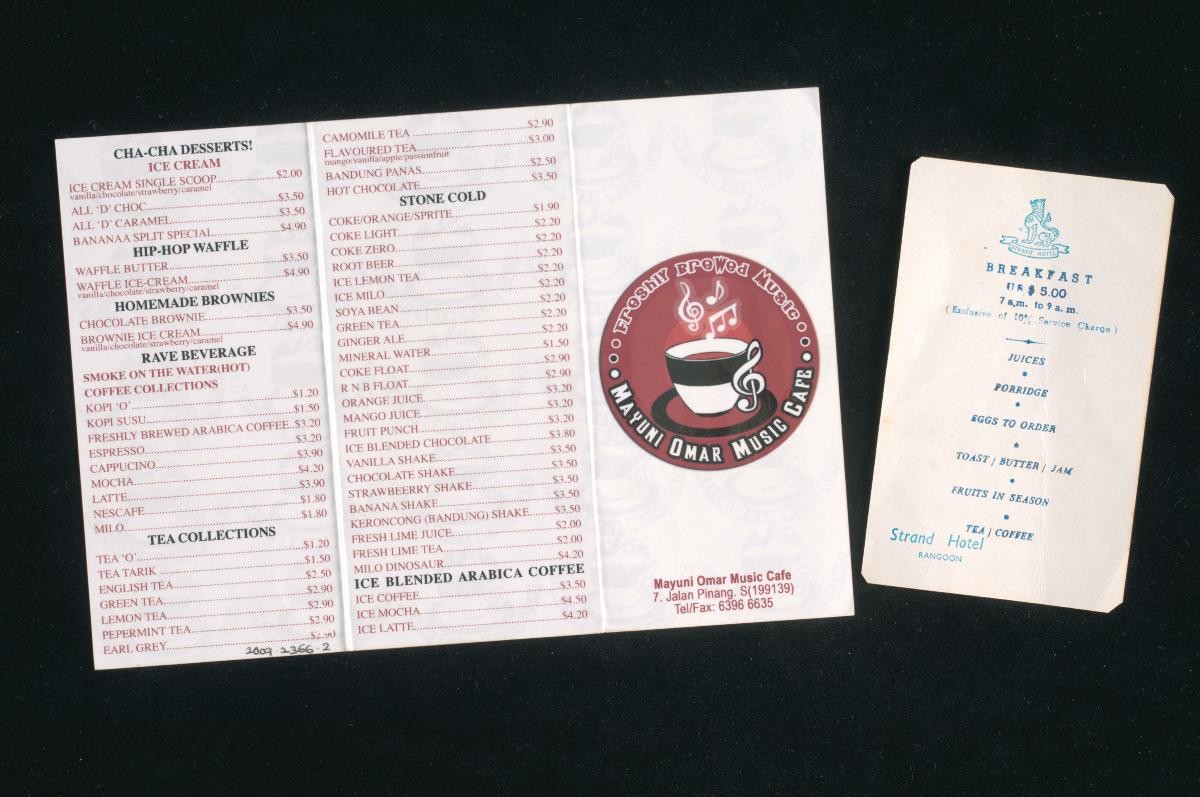 CHA-CHA DESSERTS!
ICE CREAM
ICE CREAM SINGLE SCOOP $2.00
vanilla/chocolate/strawberry/caramel
ALL 'D' CHOC $3.50
ALL 'D' CARAMEL $3.50
BANANAA SPLIT SPECIAL $4.90
HIP-HOP WAFFLE
WAFFLE BUTTER $3.50
WAFFLE ICE-CREAM $4.90
vanilla/chocolate/strawberry/caramel
HOMEMADE BROWNIES
CHOCOLATE BROWNIE $3.50
BROWNIE ICE CREAM $4.90
vanilla/chocolate/strawberry/caramel
RAVE BEVERAGE
SMOKE ON THE WATER(HOT)
COFFEE COLLECTIONS
KOPI 'O' $1.20
KOPI SUSU $1.50
FRESHLY BREWED ARABICA COFFEE $3.20
ESPRESSO $3.20
CAPPUCINO $3.90
MOCHA $4.20
LATTE $3.90
NESCAFE $1.80
MILO $1.80
TEA COLLECTIONS
TEA 'O' $1.20
TEA TARIK $1.50
ENGLISH TEA $2.50
GREEN TEA $2.90
LEMON TEA $2.90
PEPERMINT TEA $2.90
EARL GREY $2.90
2009-2366-2
CAMOMILE TEA $2.90
FLAVOURED TEA $3.00
mango/vanilla/apple/passionfruit
BANDUNG PANAS $2.50
HOT CHOCOLATE $3.50
STONE COLD
COKE/ORANGE/SPRITE $1.90
COKE LIGHT $2.20
COKE ZERO $2.20
ROOT BEER $2.20
ICE LEMON TEA $2.20
ICE MILO $2.20
SOYA BEAN $2.20
GREEN TEA $2.20
GINGER ALE $2.20
MINERAL WATER $1.50
COKE FLOAT $2.90
R N B FLOAT $2.90
ORANGE JUICE $3.20
MANGO JUICE $3.20
FRUIT PUNCH $3.20
ICE BLENDED CHOCOLATE $3.80
VANILLA SHAKE $3.50
CHOCOLATE SHAKE $3.50
STRAWBEERRY SHAKE $3.50
BANANA SHAKE $3.50
KERONCONG (BANDUNG) SHAKE $3.50
FRESH LIME JUICE $2.00
FRESH LIME TEA $2.00
MILO DINOSAUR $4.20
ICE BLENDED ARABICA COFFEE
ICE COFFEE $3.50
ICE MOCHA $4.50
ICE LATTE $4.20
Freshly Brewed Music
MAYUNI OMAR MUSIC CAFE
Mayuni Omar Music Cafe
7. Jalan Pinang. S(199139)
Tel/Fax: 6396 6635
STRAND HOTEL
BREAKFAST
US $ 5.00
7 a,m. to 9 a. m.
( Exclusive of 10% Service Charge )
JUICES
PORRIDGE
EGGS TO ORDER
TOAST / BUTTER / JAM
FRUITS IN SEASON
TEA / COFFEE
Strand Hotel
RANGOON